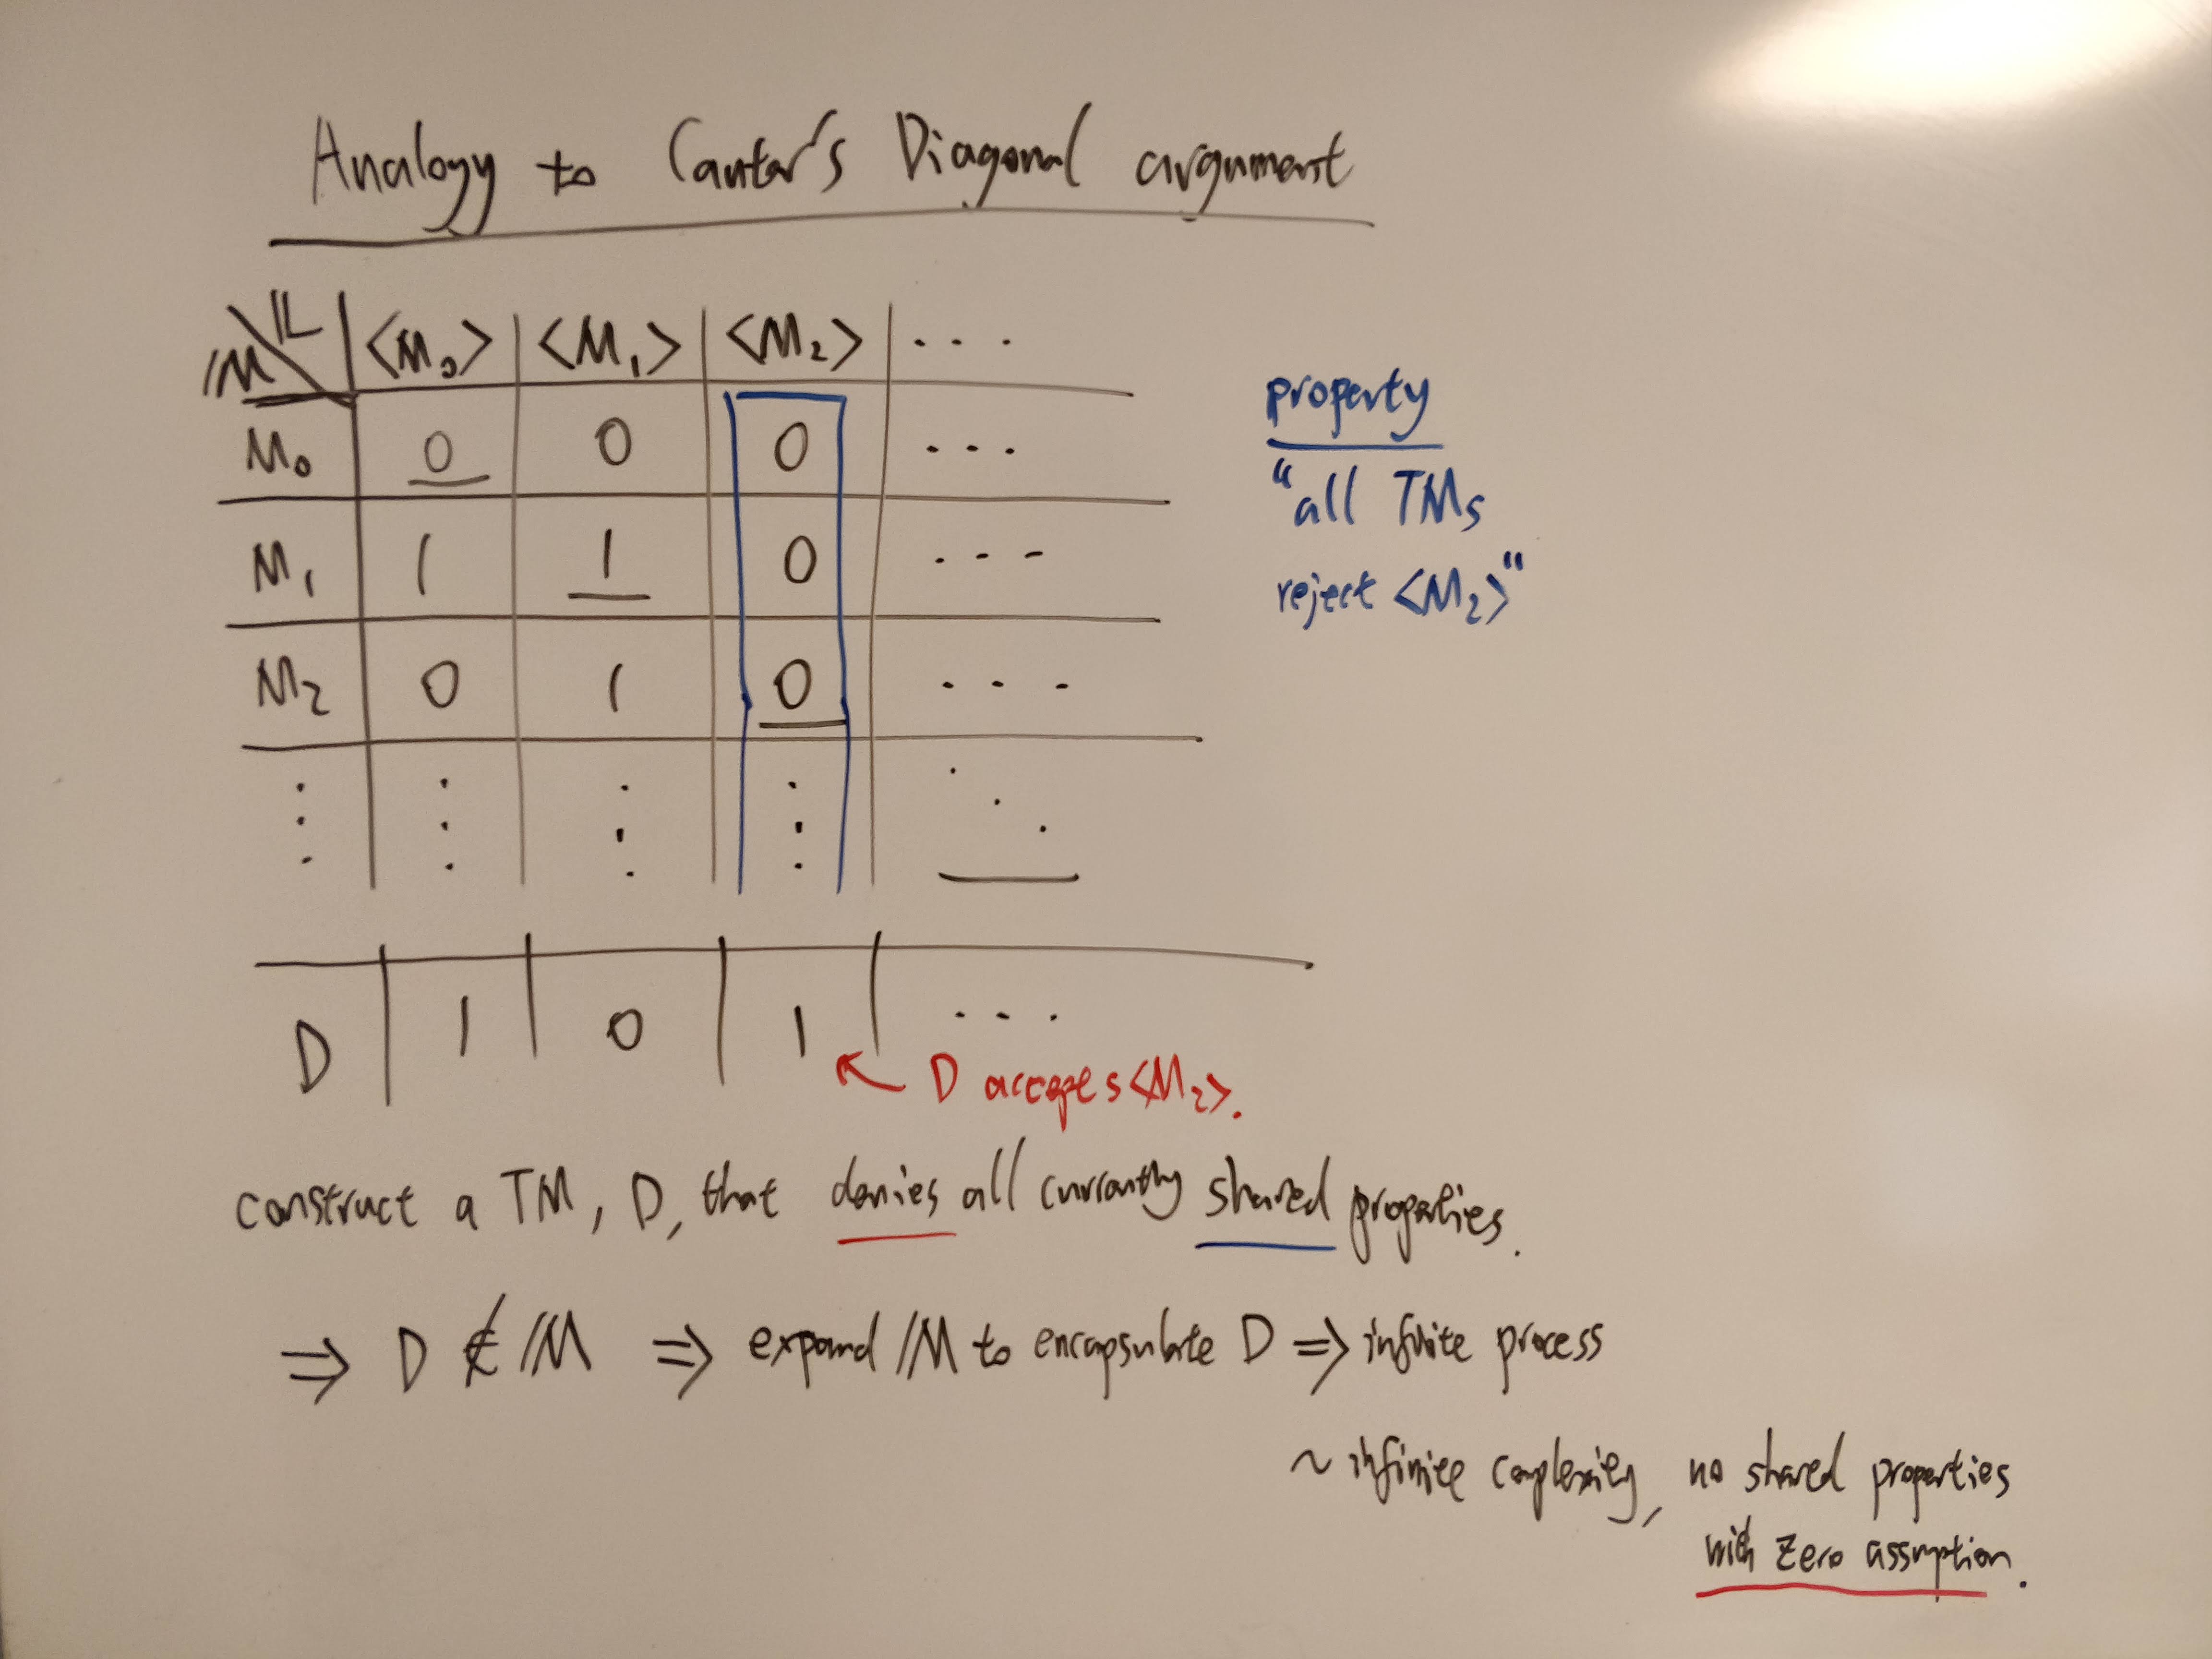 Analogy to Cantor's Diagonal argument
𝕄 \ 𝕃 | <M₀> | <M₁> | <M₂> | · · ·
M₀ | 0 | 0 | 0 | · · ·
M₁ | 1 | 1 | 0 | · · ·
M₂ | 0 | 1 | 0 | · · ·
⋮ | ⋮ | ⋮ | ⋮ | ⋱
D | 1 | 0 | 1 | · · ·
property
"all TMs
reject <M₂>"
D accepts <M₂>.
construct a TM, D, that denies all currently shared properties.
⇒ D ∉ 𝕄 ⇒ expand 𝕄 to encapsulate D ⇒ infinite process
~ infinite complexity, no shared properties
with zero assmption.